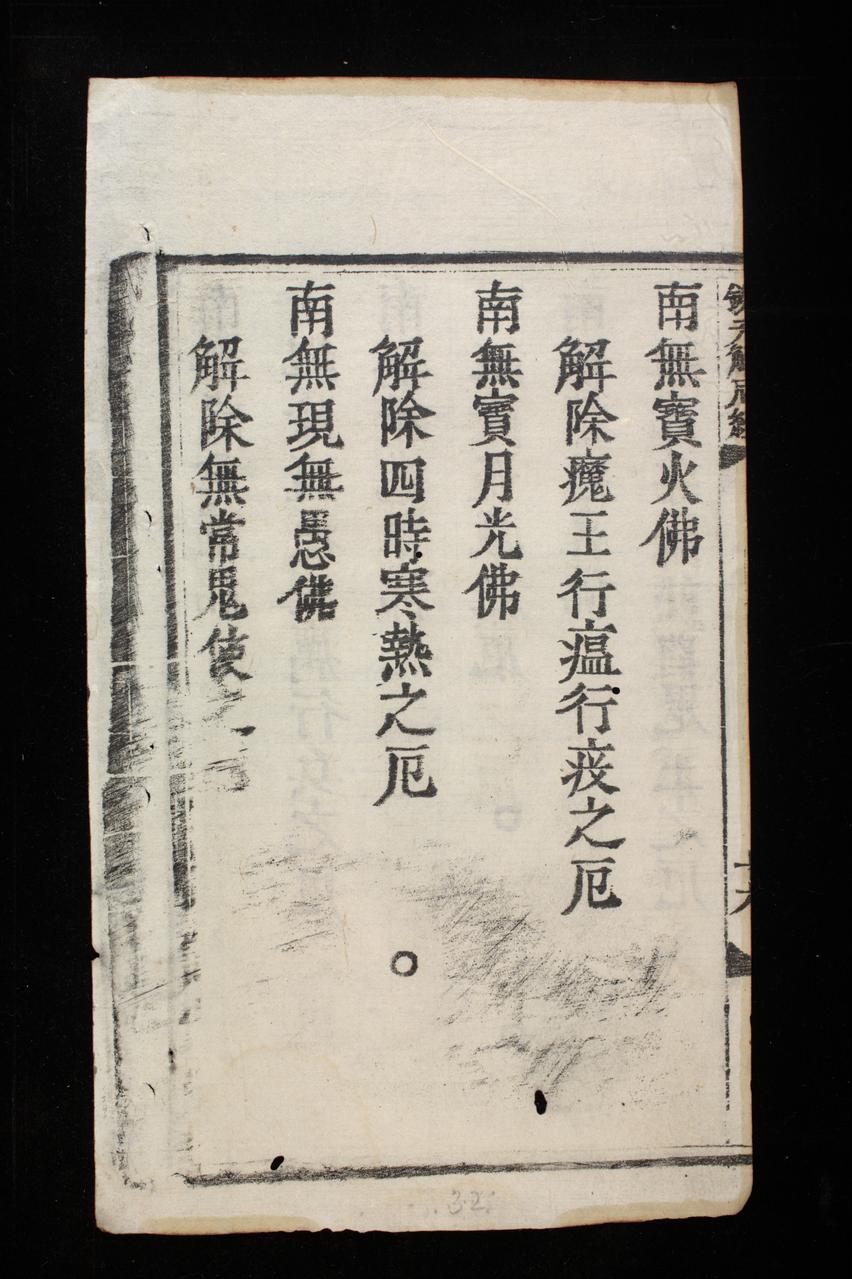 南無寶火佛
解除魔王行瘟行疫之厄
南無寶月光佛
解除四時寒熱之厄
南無現無愚佛
解除無常鬼使之
32